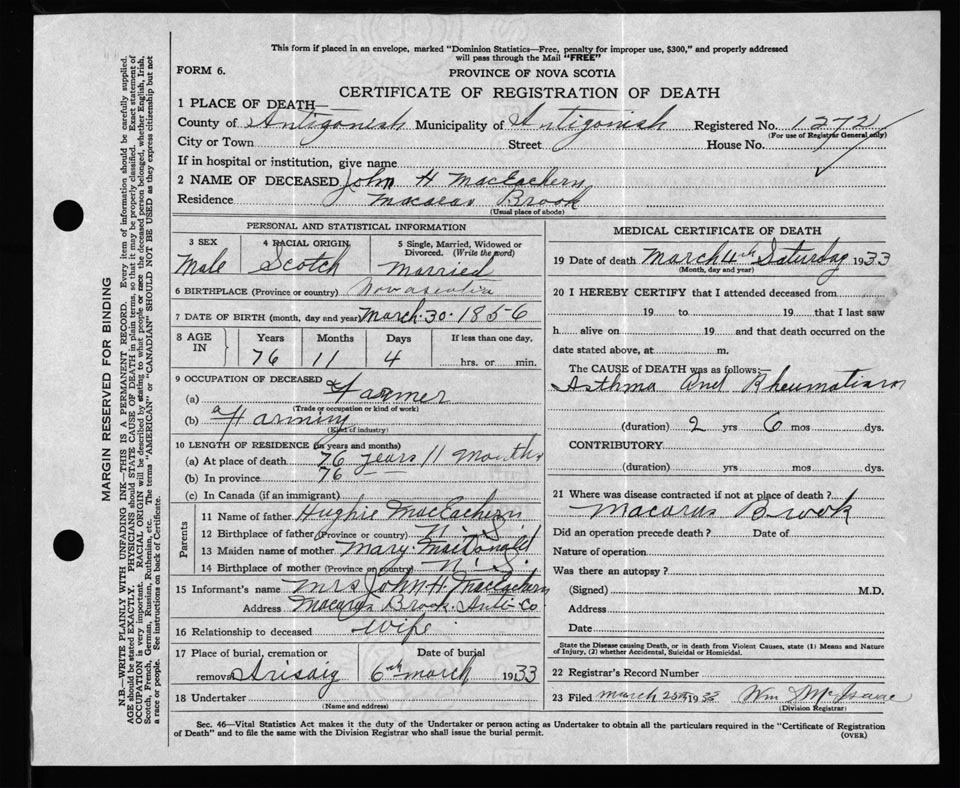 This form if placed in an envelope, marked "Dominion Statistics—Free, penalty for improper use, $300," and properly addressed
will pass through the Mail "FREE"
FORM 6.
PROVINCE OF NOVA SCOTIA
CERTIFICATE OF REGISTRATION OF DEATH
1 PLACE OF DEATH—
County of Antigonish Municipality of Antigonish Registered No. 1272
(For use of Registrar General only)
City or Town Street House No.
If in hospital or institution, give name
2 NAME OF DECEASED John H MacEachern
Residence Macaras Brook
(Usual place of abode)
PERSONAL AND STATISTICAL INFORMATION
3 SEX 4 RACIAL ORIGIN 5 Single, Married, Widowed or Divorced. (Write the word)
Male Scotch Married
6 BIRTHPLACE (Province or country) Nova scotia
7 DATE OF BIRTH (month, day and year) March. 30. 1856
8 AGE IN Years Months Days If less than one day.
76 11 4 hrs. or min.
9 OCCUPATION OF DECEASED
(a) Farmer
(Trade or occupation or kind of work)
(b) Farming
(Kind of industry)
10 LENGTH OF RESIDENCE (in years and months)
(a) At place of death 76 years 11 Months
(b) In province 76 —
(c) In Canada (if an immigrant)
Parents
11 Name of father Hughie MacEachern
12 Birthplace of father (Province or country) N. S.
13 Maiden name of mother Mary MacDonald
14 Birthplace of mother (Province or country) N. S.
15 Informant's name Mrs John H. MacEachern
Address Macaras Brook. Anti-Co
16 Relationship to deceased wife
17 Place of burial, cremation or removal Arisaig Date of burial 6th march 1933
18 Undertaker
(Name and address)
MEDICAL CERTIFICATE OF DEATH
19 Date of death March 4th Saturday 1933
(Month, day and year)
20 I HEREBY CERTIFY that I attended deceased from
19 to 19 that I last saw
h alive on 19 and that death occurred on the
date stated above, at m.
The CAUSE of DEATH was as follows:—
Asthma and Rheumatism
(duration) 2 yrs 6 mos dys.
CONTRIBUTORY
(duration) yrs mos dys.
21 Where was disease contracted if not at place of death?
Macaras Brook
Did an operation precede death? Date of
Nature of operation
Was there an autopsy?
(Signed) M.D.
Address
Date
State the Disease causing Death, or in death from Violent Causes, state (1) Means and Nature
of Injury, (2) whether Accidental, Suicidal or Homicidal.
22 Registrar's Record Number
23 Filed march 1933 Wm
(Division Registrar)
Sec. 46—Vital Statistics Act makes it the duty of the Undertaker or person acting as Undertaker to obtain all the particulars required in the "Certificate of Registration
of Death" and to file the same with the Division Registrar who shall issue the burial permit.
(OVER)
MARGIN RESERVED FOR BINDING
N.B.—WRITE PLAINLY WITH UNFADING INK—THIS IS A PERMANENT RECORD. Every item of information should be carefully supplied.
AGE should be stated EXACTLY. PHYSICIANS should STATE CAUSE OF DEATH in plain terms, so that it may be properly classified. Exact statement of
OCCUPATION is very important. RACIAL ORIGIN will be described by stating to what people or race the deceased person belonged, whether English, Irish,
Scotch, French, German, Russian, Ruthenian, etc. The terms "AMERICAN" or "CANADIAN" SHOULD NOT BE USED as they express citizenship but not
a race or people. See instructions on back of Certificate.